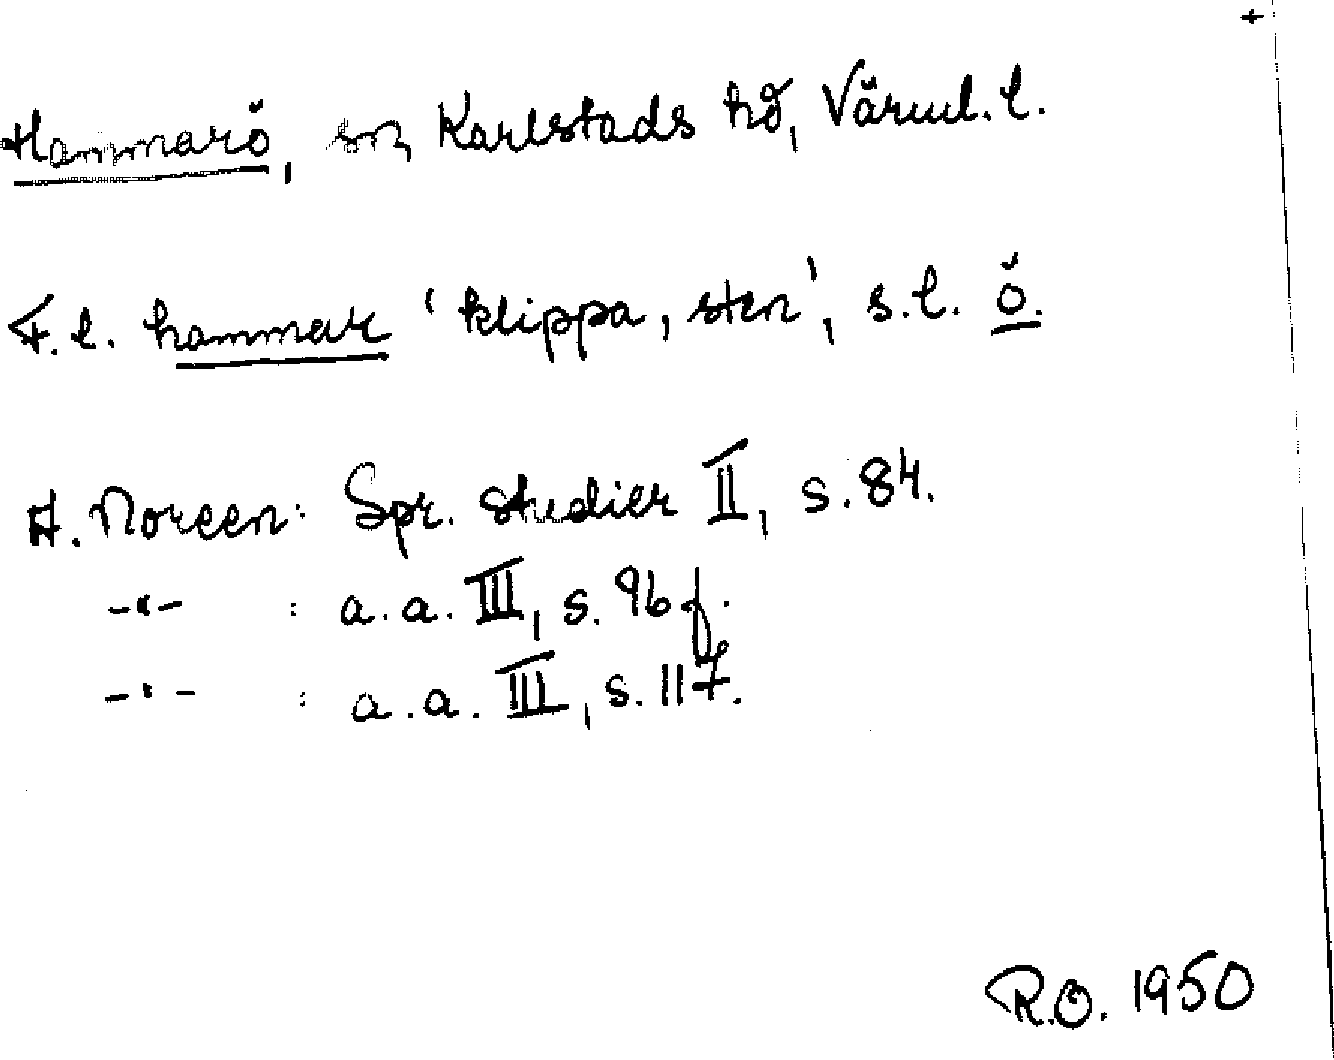 +
Hammarö, sn, Karlstads hd, Värml. l.
F.l. hammar 'klippa, sten', s.l. ö.
A. Noreen: Spr. studier II, s. 84.
-"- : a.a. III, s. 96 f.
-"- : a.a. III, s. 117.
R.O. 1950